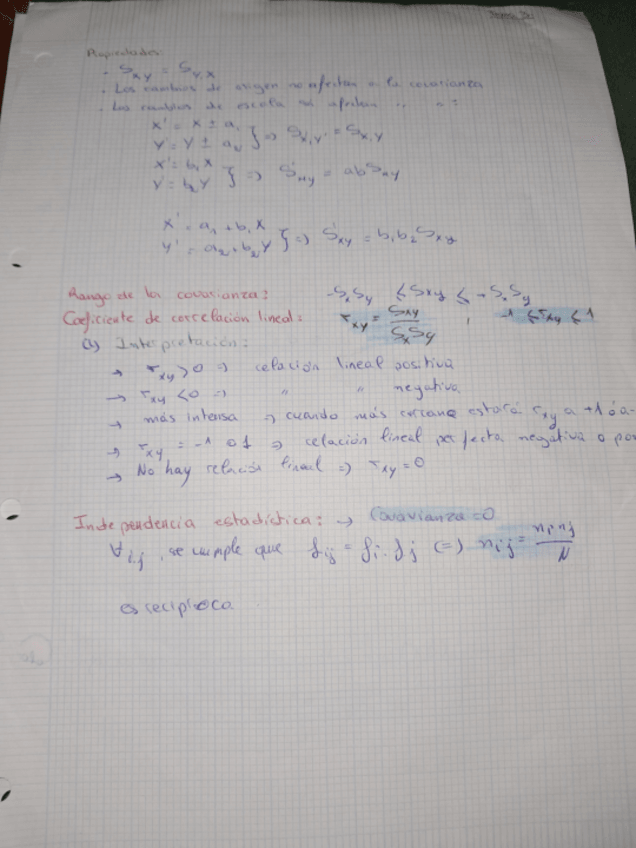 Propiedades:
· Sxy = Sy,x
· Los cambios de origen no afectan a la covarianza
· Los cambios de escala sí afectan " " :
x' = x ± a₁
y' = y ± a₂ } => Sx',y' = Sx,y
x' = b₁x
y' = b₂y } => S'xy = abSxy
x' = a₁ + b₁x
y' = a₂ + b₂y } => S'xy = b₁b₂Sxy
Rango de la covarianza: -SxSy ≤ Sxy ≤ + SxSy
Coeficiente de correlación lineal: rxy = Sxy / SxSy , -1 ≤ rxy ≤ 1
a) Interpretación:
→ rxy > 0 => relación lineal positiva
→ rxy < 0 => " " negativa
→ más intensa => cuando más cercano estará rxy a +1 ó a -
→ rxy = -1 o 1 => relación lineal perfecta negativa o pos
→ No hay relación lineal => rxy = 0
Independencia estadística: → Covarianza = 0
∀i,j , se cumple que fij = fi· f·j (=) nij = ni·nj / N
es recíproca.